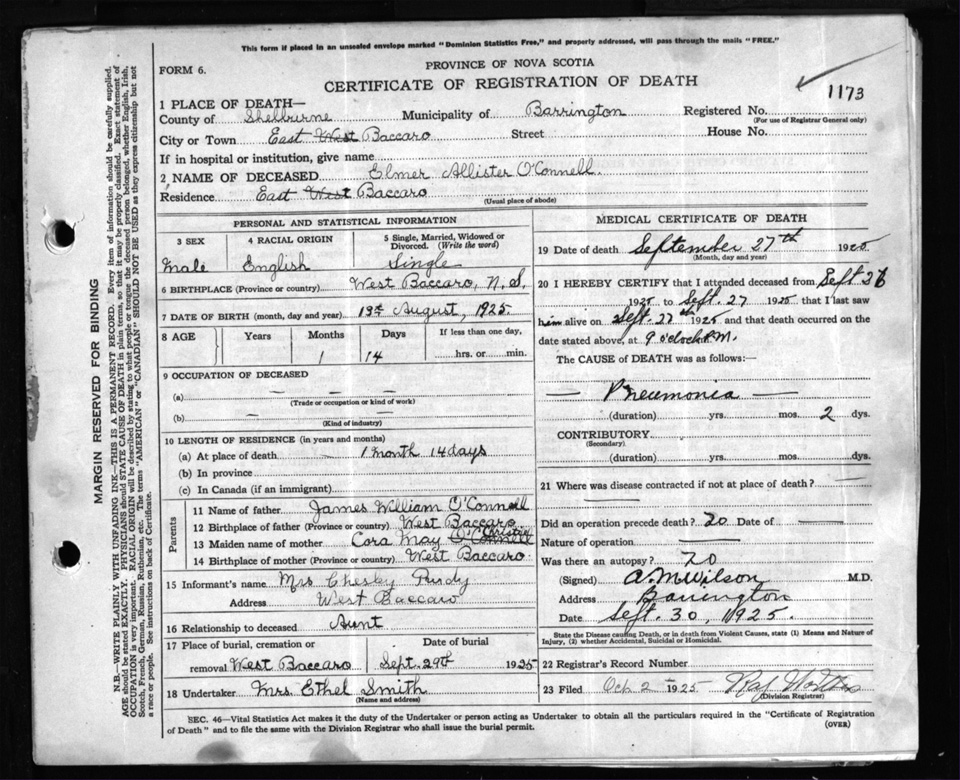 This form if placed in an unsealed envelope marked "Dominion Statistics Free," and properly addressed, will pass through the mails "FREE."
FORM 6.
PROVINCE OF NOVA SCOTIA
CERTIFICATE OF REGISTRATION OF DEATH
1173
1 PLACE OF DEATH—
County of Shelburne Municipality of Barrington Registered No.
(For use of Registrar General only)
City or Town East West Baccaro Street House No.
If in hospital or institution, give name
2 NAME OF DECEASED Elmer Allister O'Connell.
Residence East West Baccaro
(Usual place of abode)
MARGIN RESERVED FOR BINDING
N.B.—WRITE PLAINLY WITH UNFADING INK—THIS IS A PERMANENT RECORD. Every item of information should be carefully supplied.
AGE should be stated EXACTLY. PHYSICIANS should STATE CAUSE OF DEATH in plain terms, so that it may be properly classified. Exact statement of
OCCUPATION is very important. RACIAL ORIGIN will be described by stating to what people or tongue the deceased person belonged, whether English, Irish,
Scotch, French, German, Russian, Ruthenian, etc. The terms "AMERICAN" or "CANADIAN" SHOULD NOT BE USED as they express citizenship but not
a race or people. See instructions on back of Certificate.
PERSONAL AND STATISTICAL INFORMATION
3 SEX
Male
4 RACIAL ORIGIN
English
5 Single, Married, Widowed or
Divorced. (Write the word)
Single
6 BIRTHPLACE (Province or country) West Baccaro, N. S.
7 DATE OF BIRTH (month, day and year) 13th August, 1925.
8 AGE Years Months Days If less than one day,
1 14 hrs. or min.
9 OCCUPATION OF DECEASED
(a) — —
(Trade or occupation or kind of work)
(b) — —
(Kind of industry)
10 LENGTH OF RESIDENCE (in years and months)
(a) At place of death 1 month 14 days
(b) In province
(c) In Canada (if an immigrant)
Parents
11 Name of father James William O'Connell
12 Birthplace of father (Province or country) West Baccaro
13 Maiden name of mother Cora May O'Connell
14 Birthplace of mother (Province or country) West Baccaro
15 Informant's name Mrs Chesley Purdy
Address West Baccaro
16 Relationship to deceased Aunt
17 Place of burial, cremation or Date of burial
removal West Baccaro Sept. 29th 1925
18 Undertaker Mrs. Ethel Smith
(Name and address)
MEDICAL CERTIFICATE OF DEATH
19 Date of death September 27th 1925
(Month, day and year)
20 I HEREBY CERTIFY that I attended deceased from Sept 26
1925 to Sept. 27 1925 that I last saw
him alive on Sept. 27th 1925 and that death occurred on the
date stated above, at 9 o'clock P.M.
The CAUSE of DEATH was as follows:—
— Pneumonia —
(duration) yrs. mos. 2 dys.
CONTRIBUTORY
(Secondary)
(duration) yrs. mos. dys.
21 Where was disease contracted if not at place of death? —
Did an operation precede death? No Date of —
Nature of operation —
Was there an autopsy? No
(Signed) A. M. Wilson M.D.
Address Barrington
Date Sept. 30, 1925.
State the Disease causing Death, or in death from Violent Causes, state (1) Means and Nature of
Injury, (2) whether Accidental, Suicidal or Homicidal.
22 Registrar's Record Number
23 Filed Oct 2 1925
(Division Registrar)
SEC. 46—Vital Statistics Act makes it the duty of the Undertaker or person acting as Undertaker to obtain all the particulars required in the "Certificate of Registration
of Death" and to file the same with the Division Registrar who shall issue the burial permit.
(OVER)